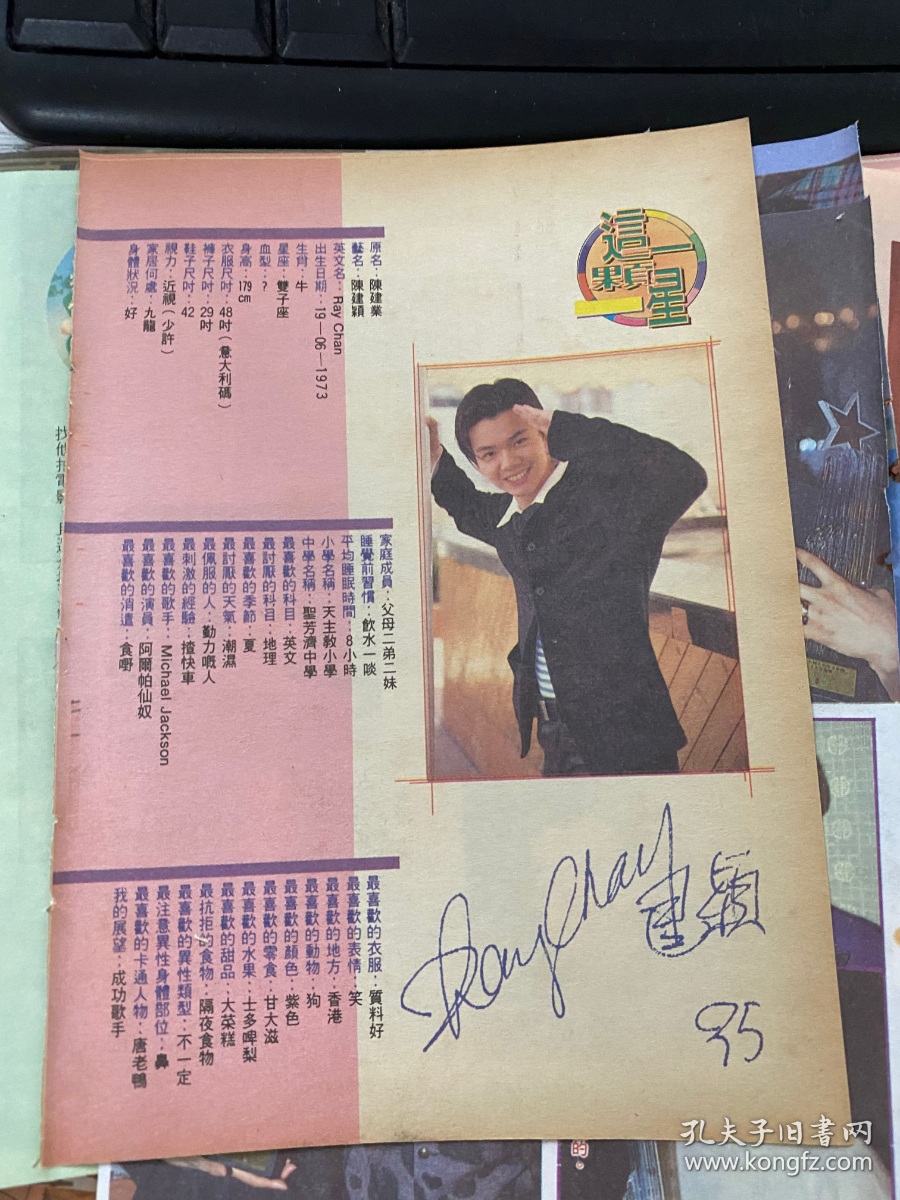 這一顆星
原名：陳建業
藝名：陳建穎
英文名：Ray Chan
出生日期：19－06－1973
生肖：牛
星座：雙子座
血型：？
身高：179cm
衣服尺吋：48吋（意大利碼）
褲子尺吋：29吋
鞋子尺吋：42
視力：近視（少許）
家居何處：九龍
身體狀況：好
家庭成員：父母二弟二妹
睡覺前習慣：飲水一啖
平均睡眠時間：8小時
小學名稱：天主教小學
中學名稱：聖芳濟中學
最喜歡的科目：英文
最討厭的科目：地理
最喜歡的季節：夏
最討厭的天氣：潮濕
最佩服的人：勤力嘅人
最刺激的經驗：揸快車
最喜歡的歌手：Michael Jackson
最喜歡的演員：阿爾帕仙奴
最喜歡的消遣：食嘢
最喜歡的衣服：質料好
最喜歡的表情：笑
最喜歡的地方：香港
最喜歡的動物：狗
最喜歡的顏色：紫色
最喜歡的零食：甘大滋
最喜歡的水果：士多啤梨
最喜歡的甜品：大菜糕
最抗拒的食物：隔夜食物
最喜歡的異性類型：不一定
最注意異性身體部位：鼻
最喜歡的卡通人物：唐老鴨
我的展望：成功歌手
Ray Chan 建穎
95
孔夫子旧书网
www.kongfz.com